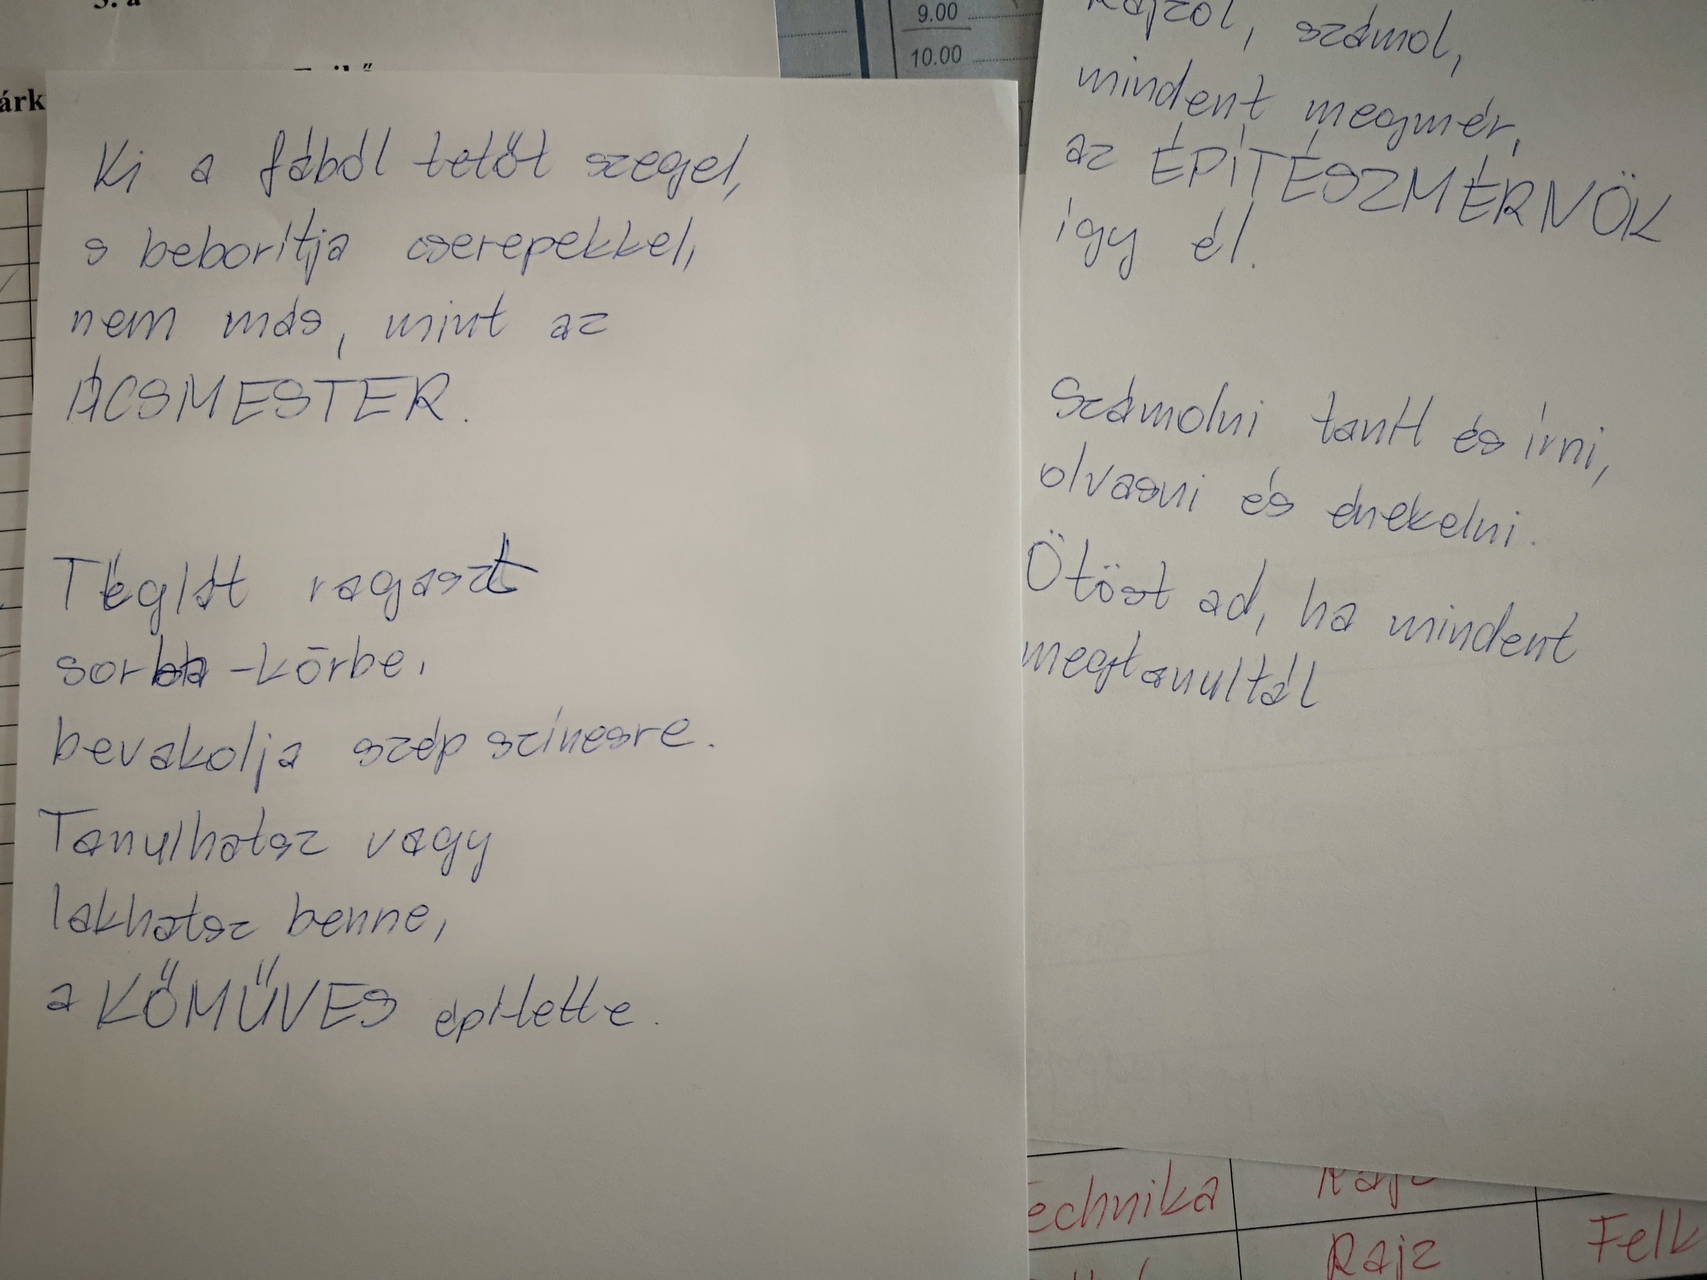 3. a
9.00
10.00
árk
Ki a fából tetőt szegel,
s beborítja cserepekkel,
nem más, mint az
ÁCSMESTER.
Téglát ragaszt
sorba-körbe,
bevakolja szép színesre.
Tanulhatsz vagy
lakhatsz benne,
a KŐMŰVES építette.
Rajzol, számol,
mindent megmér,
az ÉPÍTÉSZMÉRNÖK
így él.
Számolni tanít és írni,
olvasni és énekelni.
Ötöst ad, ha mindent
megtanultál
echnika
Rajz
Rajz
Felk